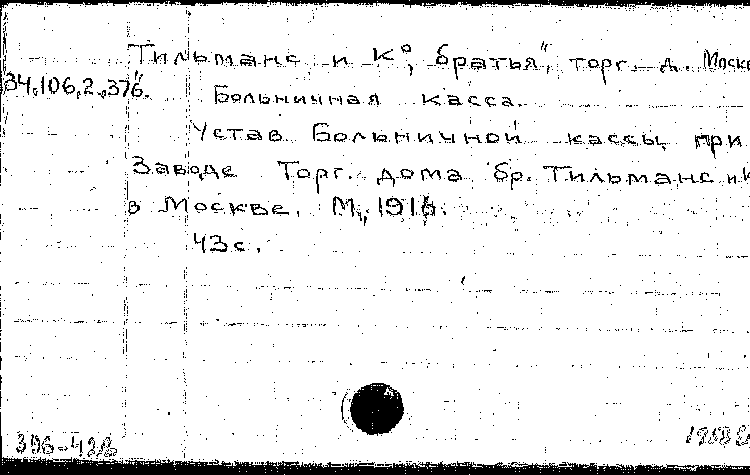 Тильманс и К°, братья", торг. д. Моск
34.106.2.376.
Больничная касса.
Устав Больничной кассы при
Заводе Торг. дома бр. Тильманс и К
в Москве. М., 1916.
43 с.